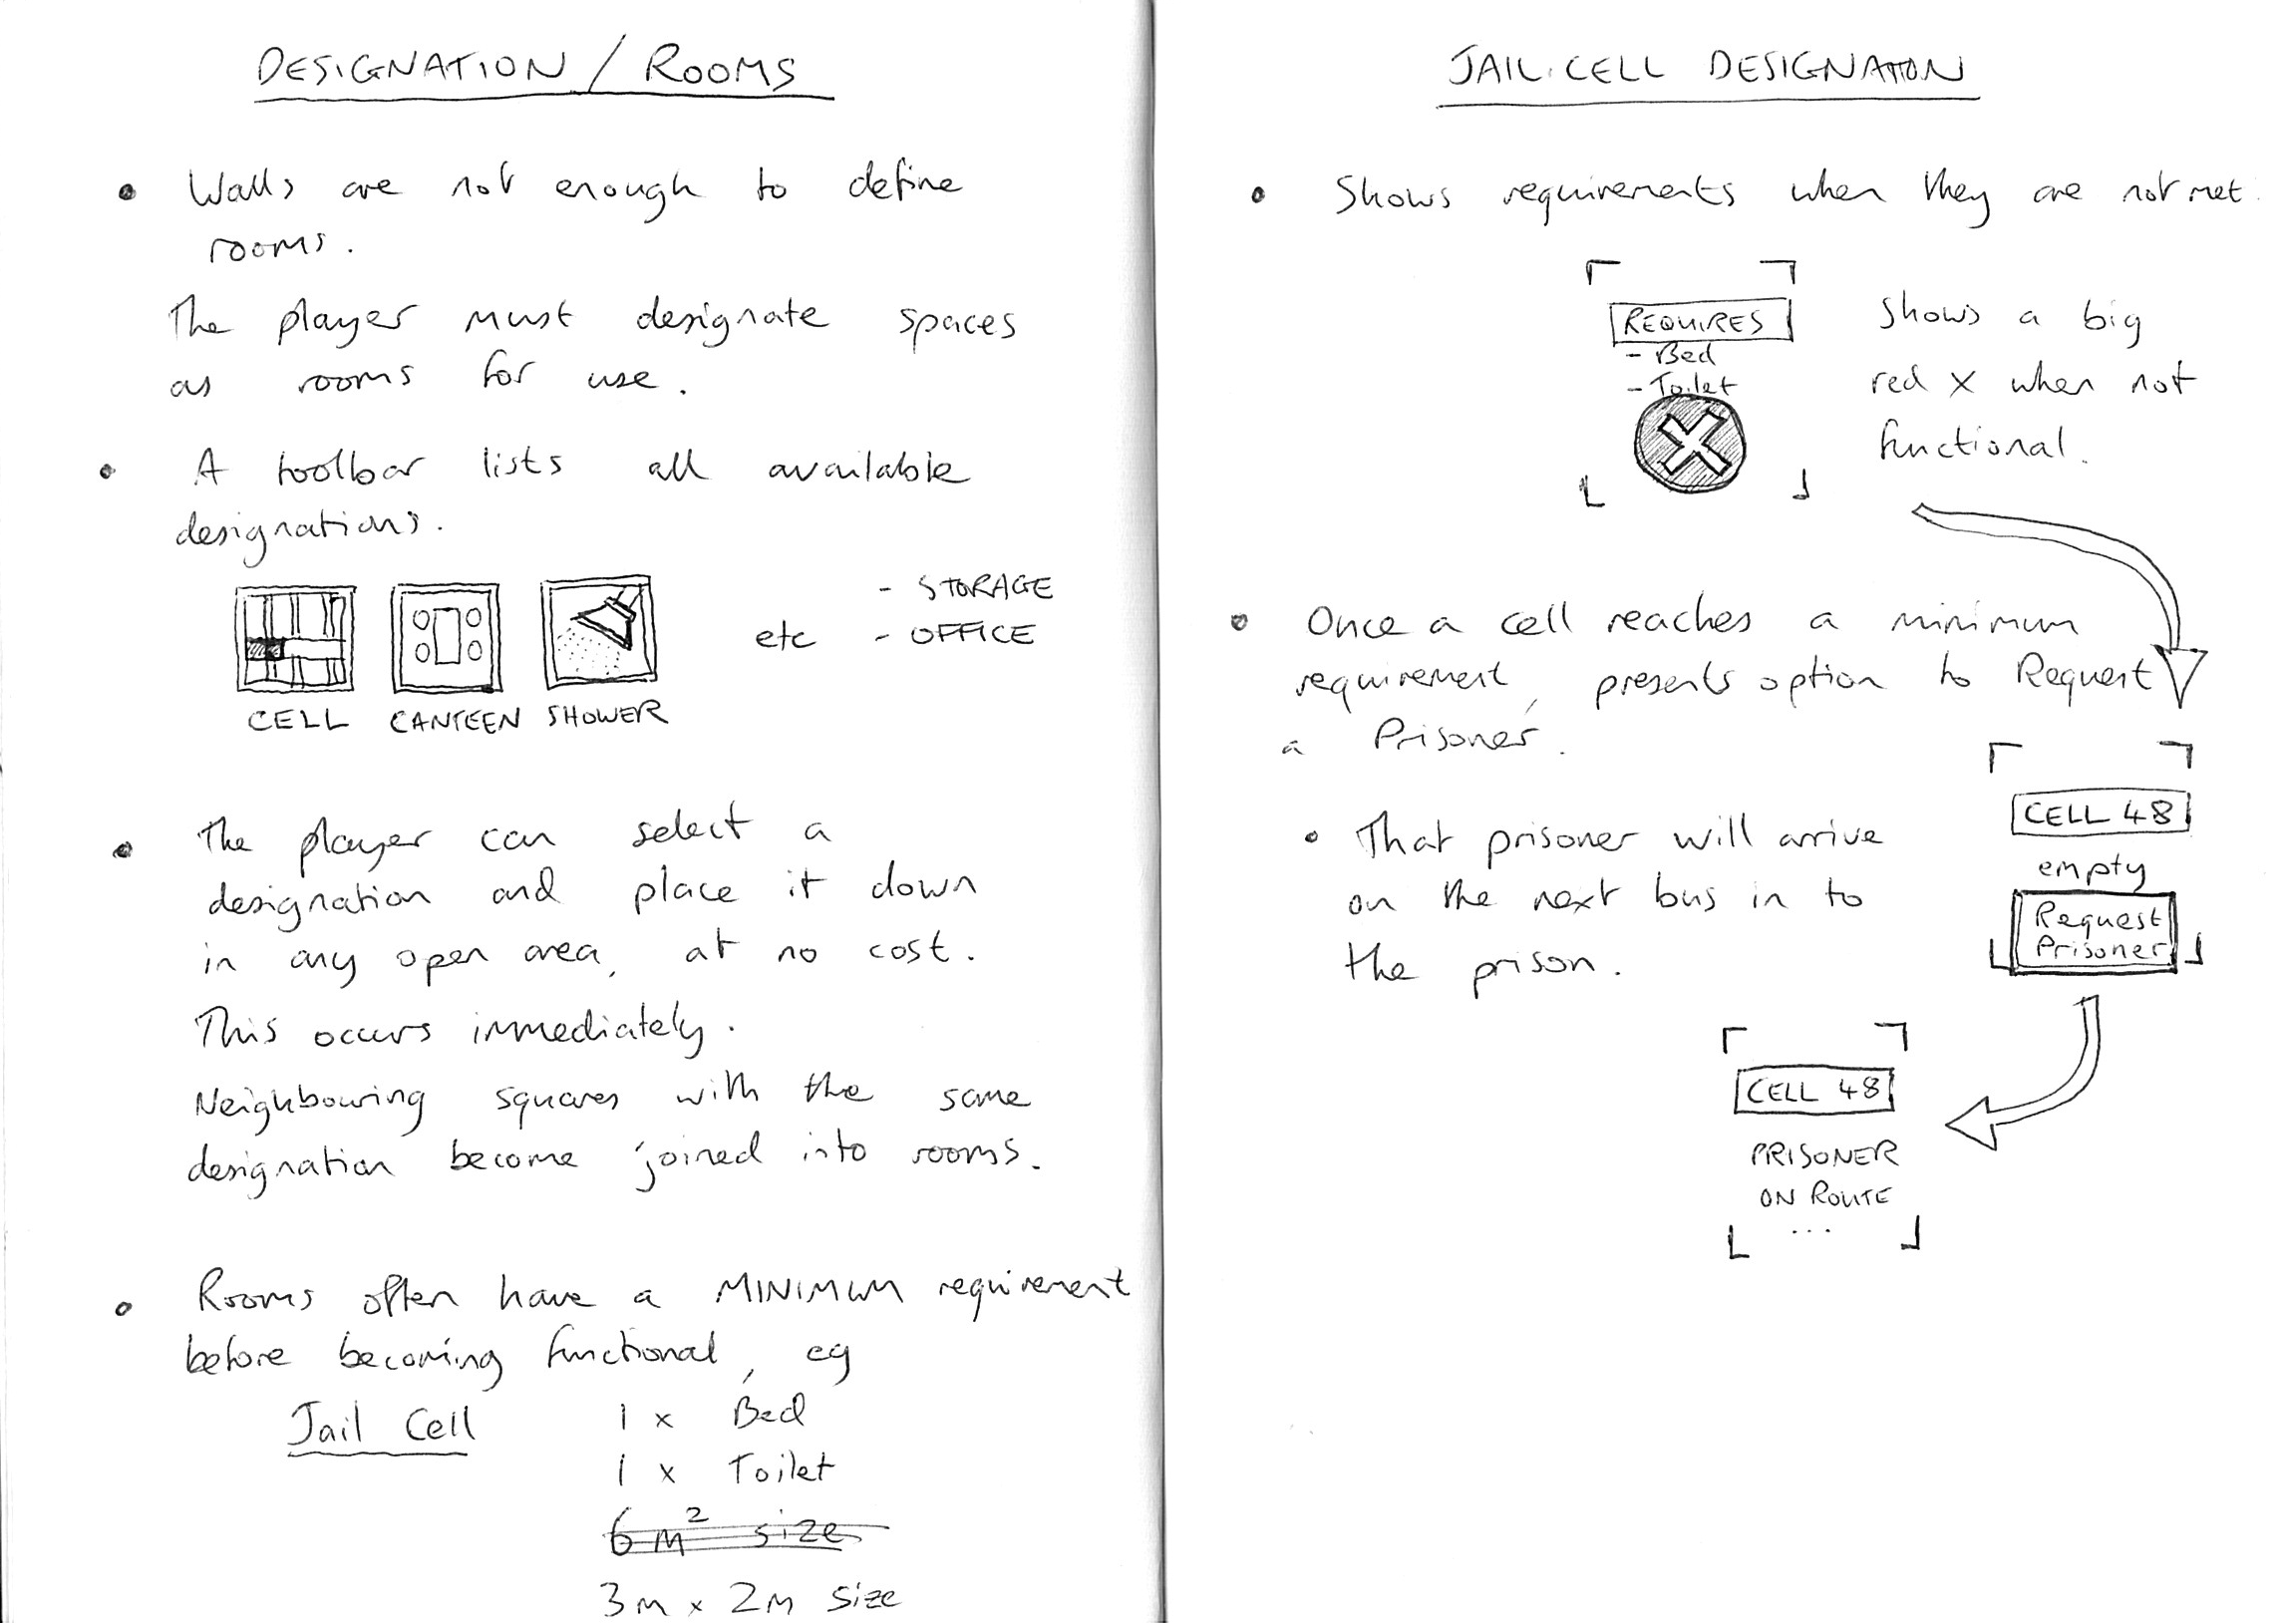 DESIGNATION / ROOMS
• Walls are not enough to define
rooms.
The player must designate spaces
as rooms for use.
• A toolbar lists all available
designations.
CELL CANTEEN SHOWER etc
- STORAGE
- OFFICE
• The player can select a
designation and place it down
in any open area, at no cost.
This occurs immediately.
Neighbouring squares with the same
designation become joined into rooms.
• Rooms often have a MINIMUM requirement
before becoming functional, eg
Jail Cell
1 x Bed
1 x Toilet
6m² size
3m x 2m size
JAIL CELL DESIGNATION
• Shows requirements when they are not met.
REQUIRES
- Bed
- Toilet
Shows a big
red X when not
functional.
• Once a cell reaches a minimum
requirement, presents option to Request
a Prisoner.
• That prisoner will arrive
on the next bus in to
the prison.
CELL 48
empty
Request
Prisoner
CELL 48
PRISONER
ON ROUTE
...